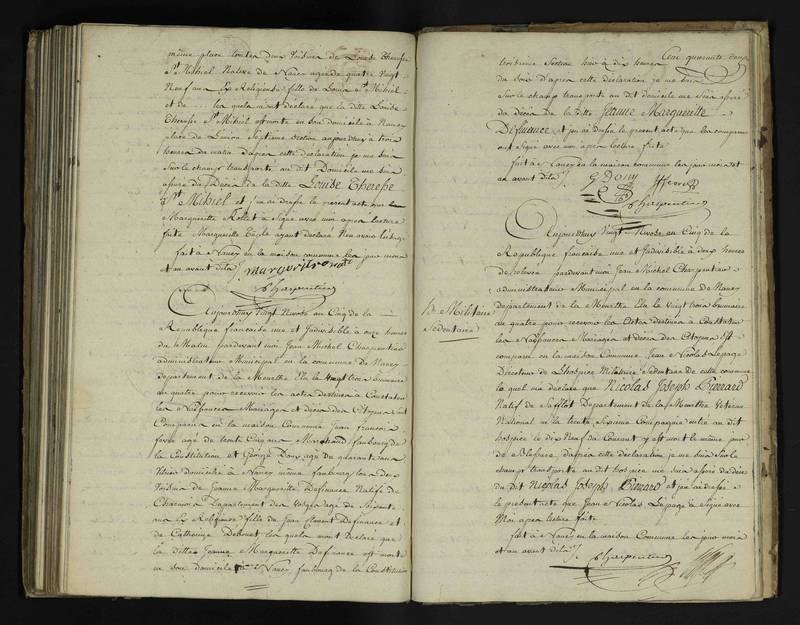 même place toutes deux voisines de Louise Therese
St Mihiel Native de Nancy agée de quatre vingt
neuf ans Ex Religieuse fille de Louis St Mihiel
et de ... lesquels m'ont déclaré que la ditte Louise
Therese St Mihiel est morte en son domicile à Nancy
place de L'union Septieme section aujourdhuy à trois
heures du matin d'après cette déclaration je me suis
Sur le champ transporté au dit Domicile me suis
assuré du Décès de la ditte Louise Therese
St Mihiel et j'ai dressé le présent acte que
Marguerite Rollet a signé avec moi après lecture
faite Marguerite ayant déclaré n'en avoir l'usage
fait à Nancy en la maison commune les jour mois
et an avant dits
JCharpentier
Aujourdhuy vingt Nivôse au Cinq de la
République française une et Indivisible à onze heures
du Matin pardevant moi Jean Michel Charpentier
administrateur Municipal en la commune de Nancy
département de la Meurthe Elu le vingt trois brumaire
an quatre pour recevoir les actes destinés à Constater
les Naissances Mariages et décès des Citoyens sont
Comparus en la maison Commune Jean françois
agé de trente Cinq ans Marchand faubourg de
la Constitution et George Dony agé de quarante ans
domicilié à Nancy même faubourg tous deux
voisins de Jeanne Marguerite Definance Native de
Charmois Département des Vosges agée de Soixante
ans Ex Religieuse fille de Jean Clement Definance et
de Catherine lesquels m'ont Déclaré que
la ditte Jeanne Marguerite Definance est morte
en son domicile à Nancy faubourg de la Constitution
Cent quarante deux
troisieme Section hier à dix heures
du soir d'après cette déclaration je me suis
Sur le champ transporté au dit domicile me suis assuré
du Décès de la ditte Jeanne Marguerite
Definance et j'ai dressé le présent acte que les comparus
ont signé avec moi après lecture faite
fait à Nancy en la maison commune les jour mois et
an avant dits
G Dony
JCharpentier
Aujourdhuy vingt Nivôse au Cinq de la
République française une et Indivisible à deux heures
de relevée pardevant moi Jean Michel Charpentier
administrateur Municipal en la commune de Nancy
Département de la Meurthe Elu le vingt trois brumaire
an quatre pour recevoir les Actes destinés à Constater
les Naissances Mariages et décès des Citoyens est
comparu en la maison Commune Jean Nicolas Lepage
Directeur de L'hospice Militaire Sédentaire de cette commune
lequel m'a déclaré que Nicolas Joseph
Natif de Département de la Meurthe Vétéran
National de la trente Sixieme Compagnie entré au dit
hospice le dix Neuf du Courant y est mort le même jour
de Blessure d'après cette déclaration je me suis sur le
champ transporté au dit hospice me suis assuré du décès
du dit Nicolas Joseph et j'ai dressé
le présent acte que Jean Nicolas Lepage a signé avec
Moi après lecture faite
fait à Nancy en la maison Commune les jour mois
et an avant dits
JCharpentier
h. Militaire
Sédentaire